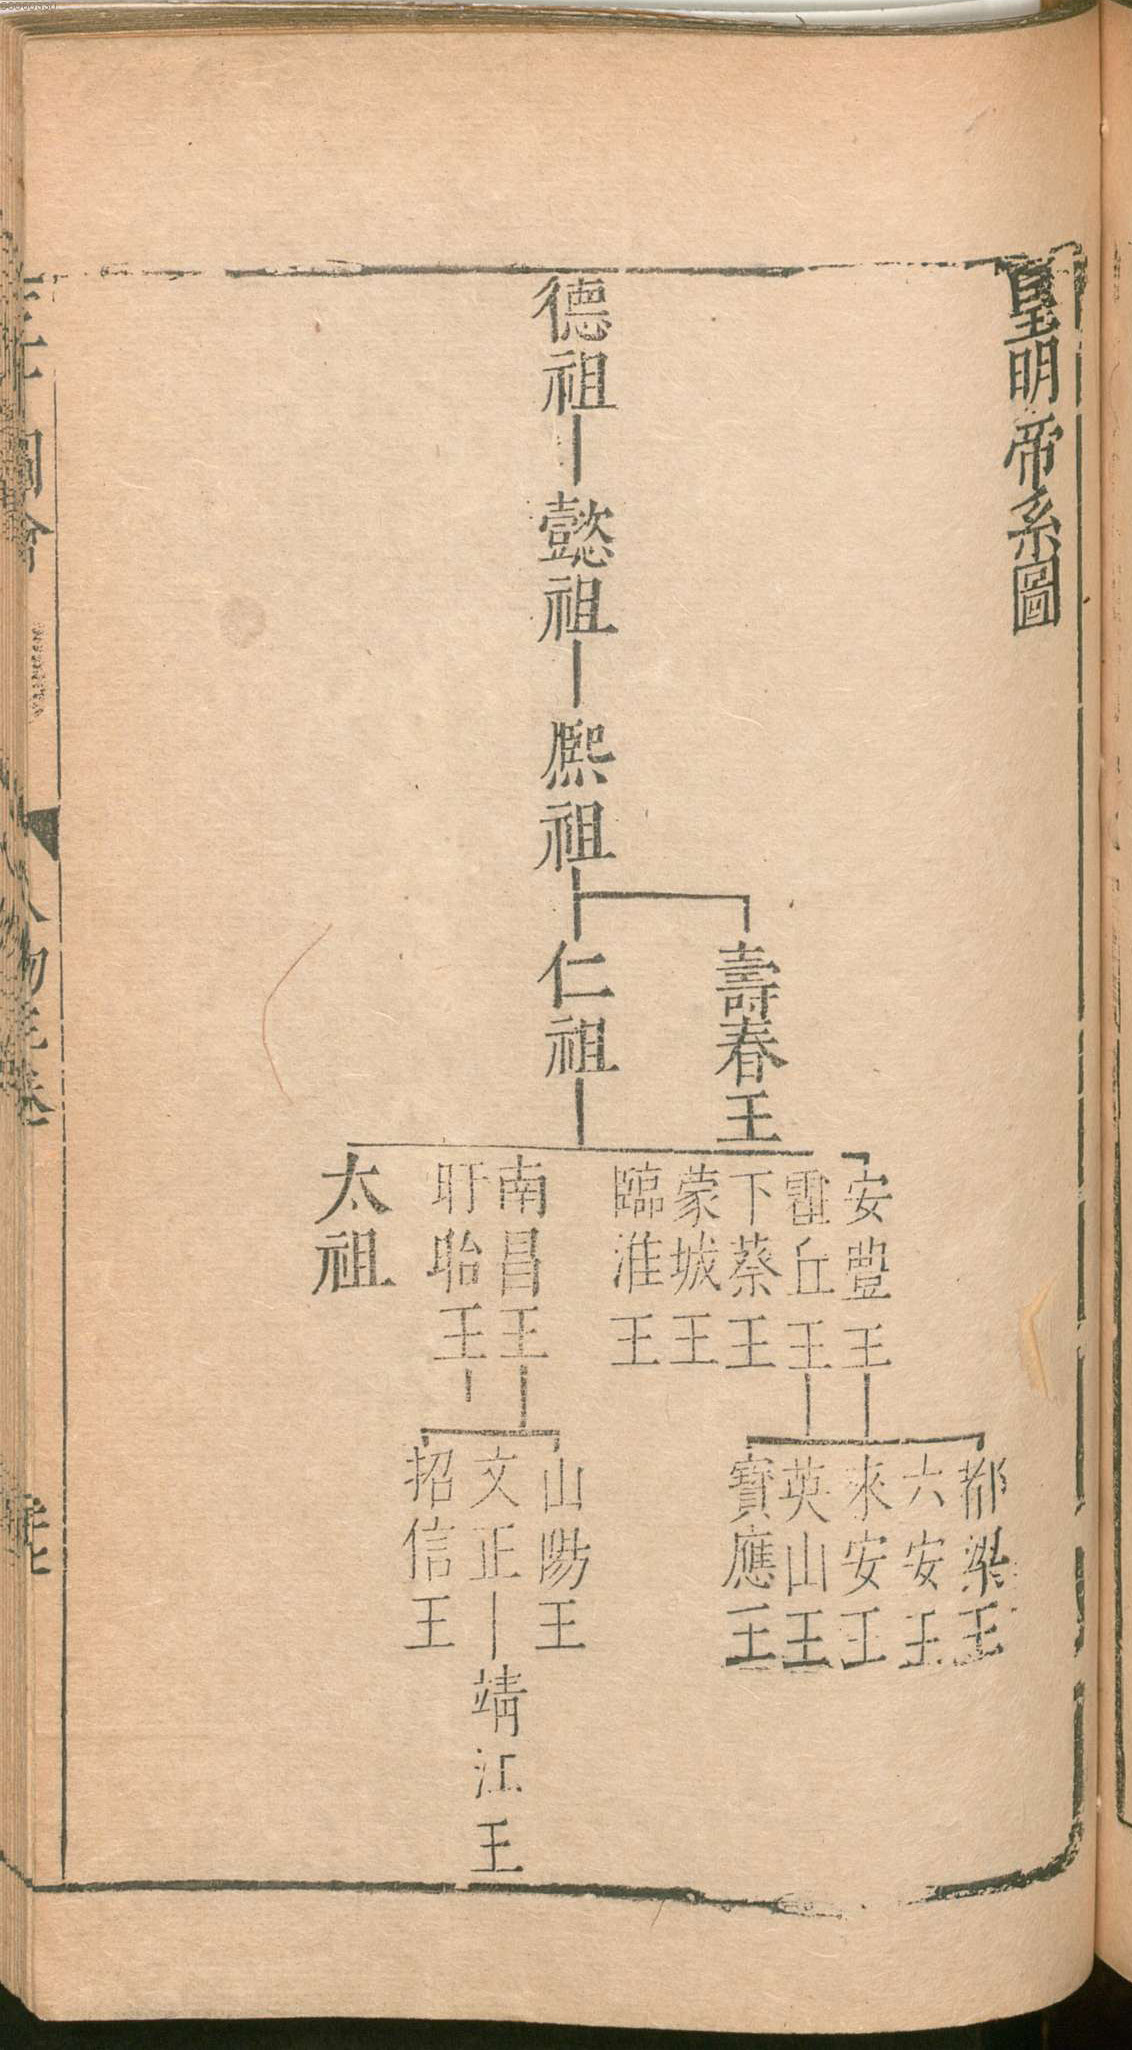 皇明帝系圖
德祖
懿祖
熙祖
仁祖
壽春王
安豐王
霍丘王
下蔡王
蒙城王
臨淮王
南昌王
盱眙王
太祖
都梁王
六安王
來安王
英山王
寶應王
山陽王
文正
招信王
靖江王